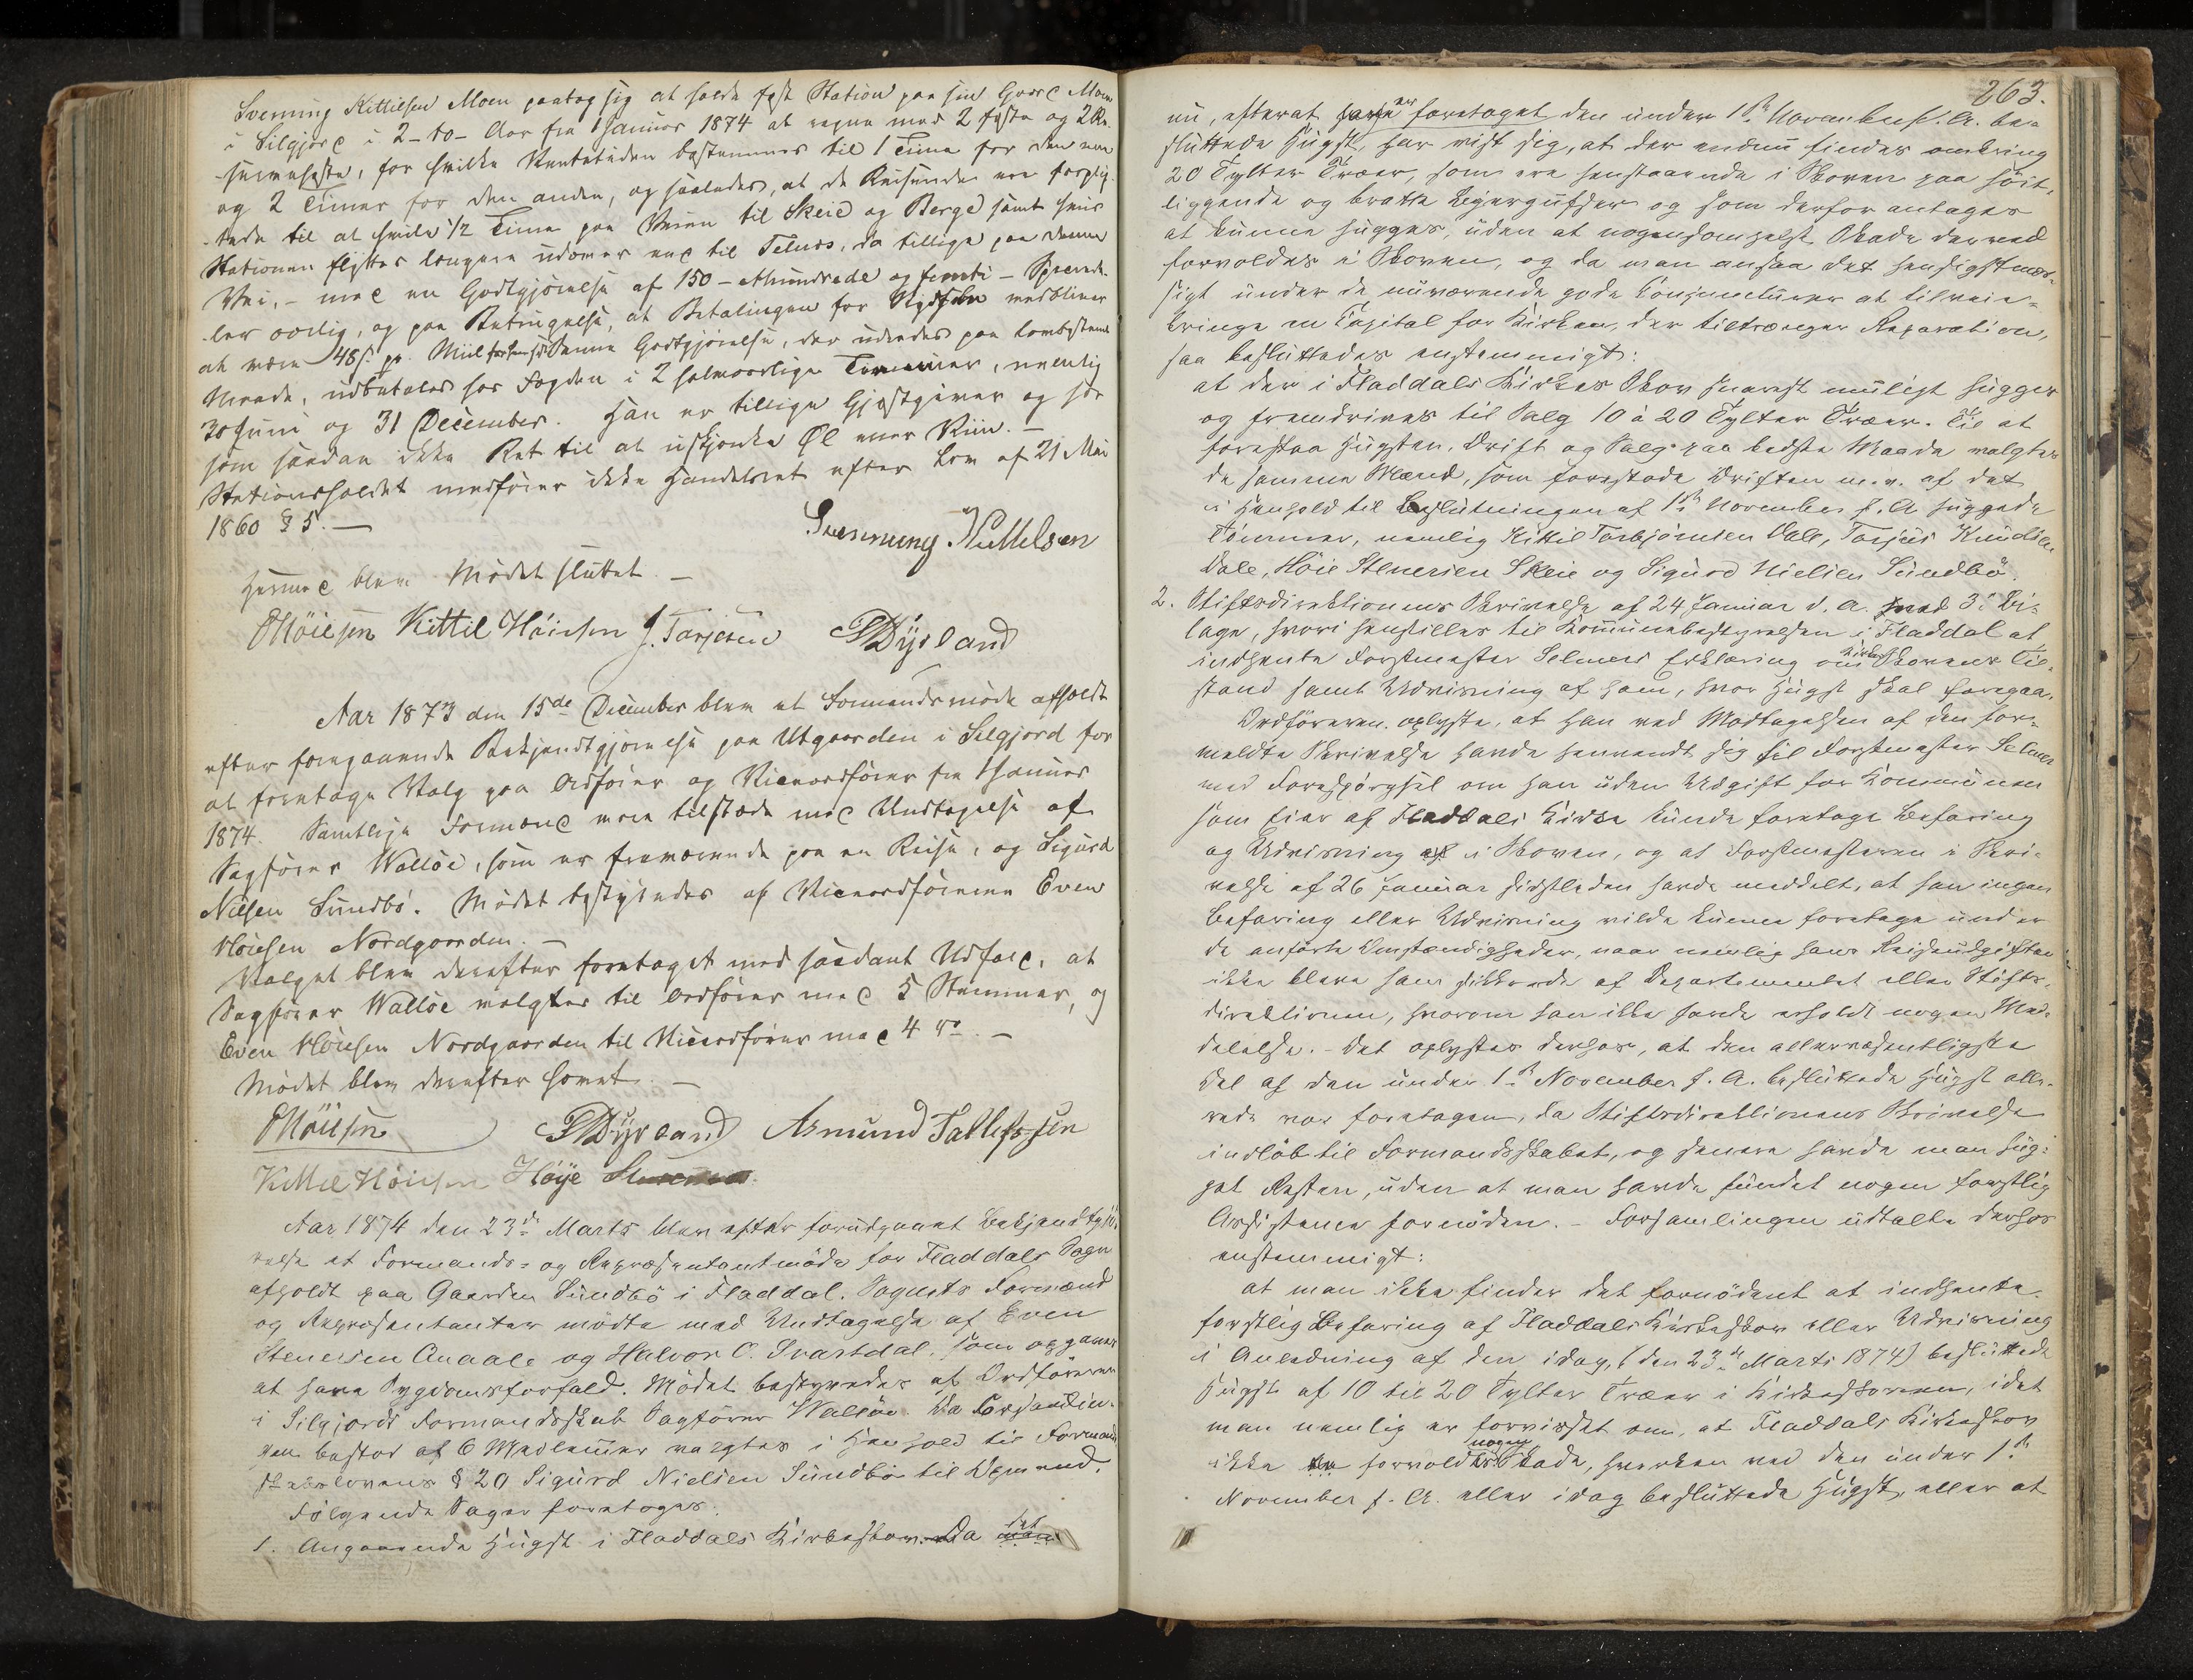 Svenning Kittilsen Moen paatog sig at holde fast Station paa sin Gaard Moen
i Silgjord i 2 - to - Aar fra 1 Januar 1874 at regne med 2 faste og 2 Re-
serveheste, for hvilke Ventetiden bestemmes til 1 Time for den ene
og 2 Timer for den anden, og saaledes, at de Reisende ere forplig-
tede til at hvile 1/2 Time paa Veien til Skeie og Berge samt hvis
Stationen flyttes længere udover end til Telnes, da tillige paa denne
Vei, - med en Godtgjörelse af 150 - ethundrede og femti - Specieda-
ler aarlig, og paa Betingelse, at Betalingen for Skydsen vedbliver
at være 48 s. pr. Miil for Hest. Denne Godtgjörelse, der udredes paa lovbestemt
Maade, udbetales hos Fogden i 2 halvaarlige Terminer, nemlig
30 Juni og 31 December. Han er tillige Gjæstgiver og har
som saadan ikke Ret til at uskjænke Øl eller Viin. -
Stationsholdet medfører ikke Handelsret efter Lov af 21 Mai
1860 § 5. -
Svenning Kittelsen
Hermed blev Mödet sluttet. -
EHöiesen Kittil Höiesen J. Tarjesen PDyrland
Aar 1873 den 15de December blev et Formandsmöde afholdt
efter foregaaende Bekjendtgjörelse paa Utgaarden i Silgjord for
at foretage Valg paa Ordförer og Viceordförer fra 1 Januar
1874. Samtlige Formænd vare tilstede med Undtagelse af
Sagförer Wallöe, som er fraværende paa en Reise, og Sigurd
Nilsen Sundbö. Mödet bestyredes af Viceordföreren Even
Höiesen Nordgaarden. -
Valget blev derefter foretaget med saadant Udfald, at
Sagförer Wallöe valgtes til Ordförer med 5 Stemmer, og
Even Höiesen Nordgaarden til Viceordförer med 4 do. -
Mödet blev derefter hævet. -
EHöiesen PDyrland Asmund Tallefssen
Kittel Höiesen Höye
Aar 1874 den 23de Marts blev efter forudgaaet Bekjendtgjö-
relse et Formands- og Repræsentantmöde for Fladdals Sogn
afholdt paa Gaarden Sundbö i Fladdal. Sognets Formænd
og Repræsentanter mödte med Undtagelse af Even
Stenersen Aagale og Halvor O. Svartdal, som opgaves
at have Sygdomsforfald. Mödet bestyredes af Ordföreren
i Silgjords Formandskab Sagförer Wallöe. Da Forsamlin-
gen bestod af 6 Medlemmer valgtes i Henhold til Formand-
skabslovens § 20 Sigurd Nielsen Sundbö til Opmand.
Fölgende Sager foretoges:
1. Angaaende Hugst i Fladdals Kirkeskov. Da det
263.
nu, efterat er foretaget den under 1ste November f. A. be-
sluttede Hugst, har vist sig, at der endnu findes omkring
20 Tylter Træer, som ere henstaaende i Skoven paa höit-
liggende og bratte og som derfor antages
at kunne hugges, uden at nogensomhelst Skade derved
forvoldes i Skoven, og da man ansaa det hensigtsmæs-
sigt under de nuværende gode Conjuncturer at tilveie-
bringe en Capital for Kirken, der tiltrænger Reparation,
saa besluttedes enstemmigt:
at der i Fladdals Kirkes Skov snarest muligt hugges
og fremdrives til Salg 10 à 20 Tylter Træer. Til at
forestaa Hugsten, Drift og Salg paa bedste Maade valgtes
de samme Mænd, som forestode Driften m. v. af det
i Henhold til Beslutningen af 1ste November f. A. huggede
Tömmer, nemlig Kittil Torbjörnsen Dale, Tarjus Knudsen
Dale, Höie Stenersen Skeie og Sigurd Nielsen Sundbö.
2. Stiftsdirektionens Skrivelse af 24 Januar d. A. med 3 Bi-
lage, hvori henstilles til Kommunebestyrelsen i Fladdal at
indhente Forstmester Selmers Erklæring om Kirkeskovens Til-
stand samt Udvisning af ham, hvor Hugst skal foregaa.
Ordföreren oplyste, at han ved Modtagelsen af den for-
meldte Skrivelse havde henvendt sig til Forstmester Selmer
med Forespörgsel om han uden Udgift for Kommunen
som Eier af Fladdals Kirke kunde foretage Befaring
og Udvisning i Skoven, og at Forstmesteren i Skri-
velse af 26 Januar sidstleden havde meddelt, at han ingen
Befaring eller Udvisning vilde kunne foretage under
de anförte Omstændigheder, naar nemlig hans Reiseudgifter
ikke bleve ham sikkrede af Departementet eller Stifts-
direktionen, hvorom han ikke havde erholdt nogen Med-
delelse. - Det oplystes derhos, at den allervæsentligste
Del af den under 1ste November f. A. besluttede Hugst alle-
rede var foretagen, da Stiftsdirektionens Skrivelse
indlöb til Formandskabet, og senere havde man hug-
get Resten, uden at man havde fundet nogen forstlig
Assistance fornöden. - Forsamlingen udtalte derhos
enstemmigt:
at man ikke finder det fornödent at indhente
forstlig Befaring af Fladdals Kirkeskov eller Udvisning
i Anledning af den idag, (den 23de Marts 1874) besluttede
Hugst af 10 til 20 Tylter Træer i Kirkeskoven, idet
man nemlig er forvisset om, at Fladdals Kirkeskov
ikke forvoldes nogen Skade, hverken ved den under 1ste
November f. A. eller idag besluttede Hugst, eller at